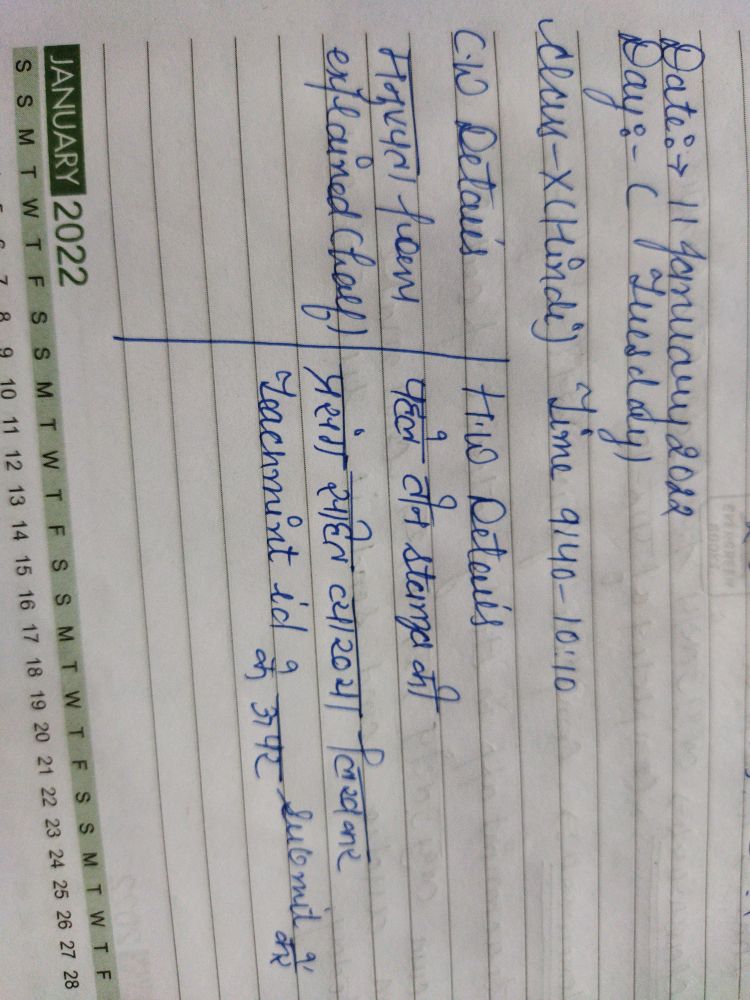 Date:→ 11 January 2022
Day:- ( Tuesday)
Class-X(Hindi) Time 9:40-10:10
C.W Details
मनुष्यता poem
explained(half)
H.W Details
पहले तीन stanza की
प्रसंग सहित व्याख्या लिखकर
Teachmint id के ऊपर submit करें
JANUARY 2022
S S M T W T F S S M T W T F S S M T W T F S S M T W T F
6 7 8 9 10 11 12 13 14 15 16 17 18 19 20 21 22 23 24 25 26 27 28